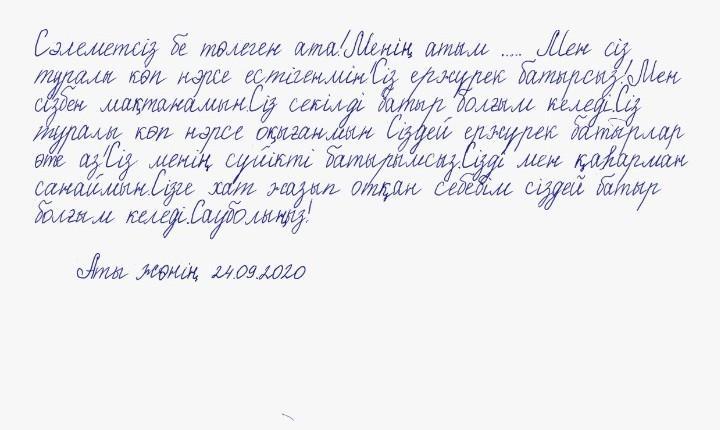 Сәлеметсіз бе төлеген ата!Менің атым ..... Мен сіз
туралы көп нәрсе естігенмін!Сіз ержүрек батырсыз!Мен
сізбен мақтанамын.Сіз секілді батыр болғым келеді.Сіз
туралы көп нәрсе оқығанмын Сіздей ержүрек батырлар
өте аз!Сіз менің сүйікті батырымсыз.Сізді мен қаһарман
санаймын.Сізге хат жазып отқан себебім сіздей батыр
болғым келеді.Сауболыңыз!
Аты жөнің 24.09.2020